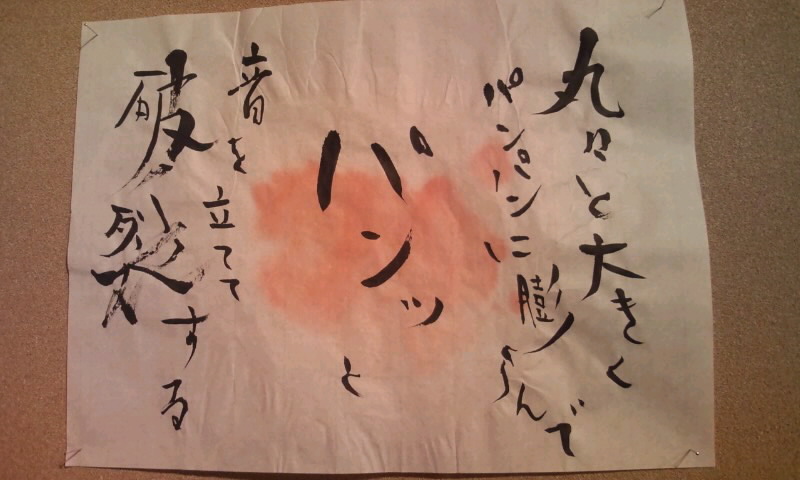 丸々と大きく
パンパンに膨らんで
パンッと
音を立てて
破裂する